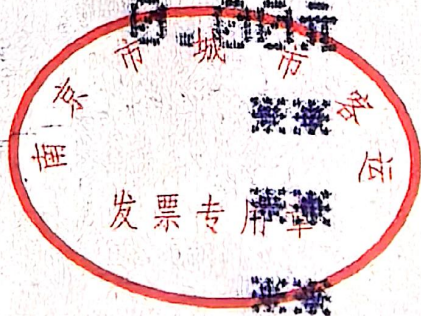 南京市城市客运
发票专用章